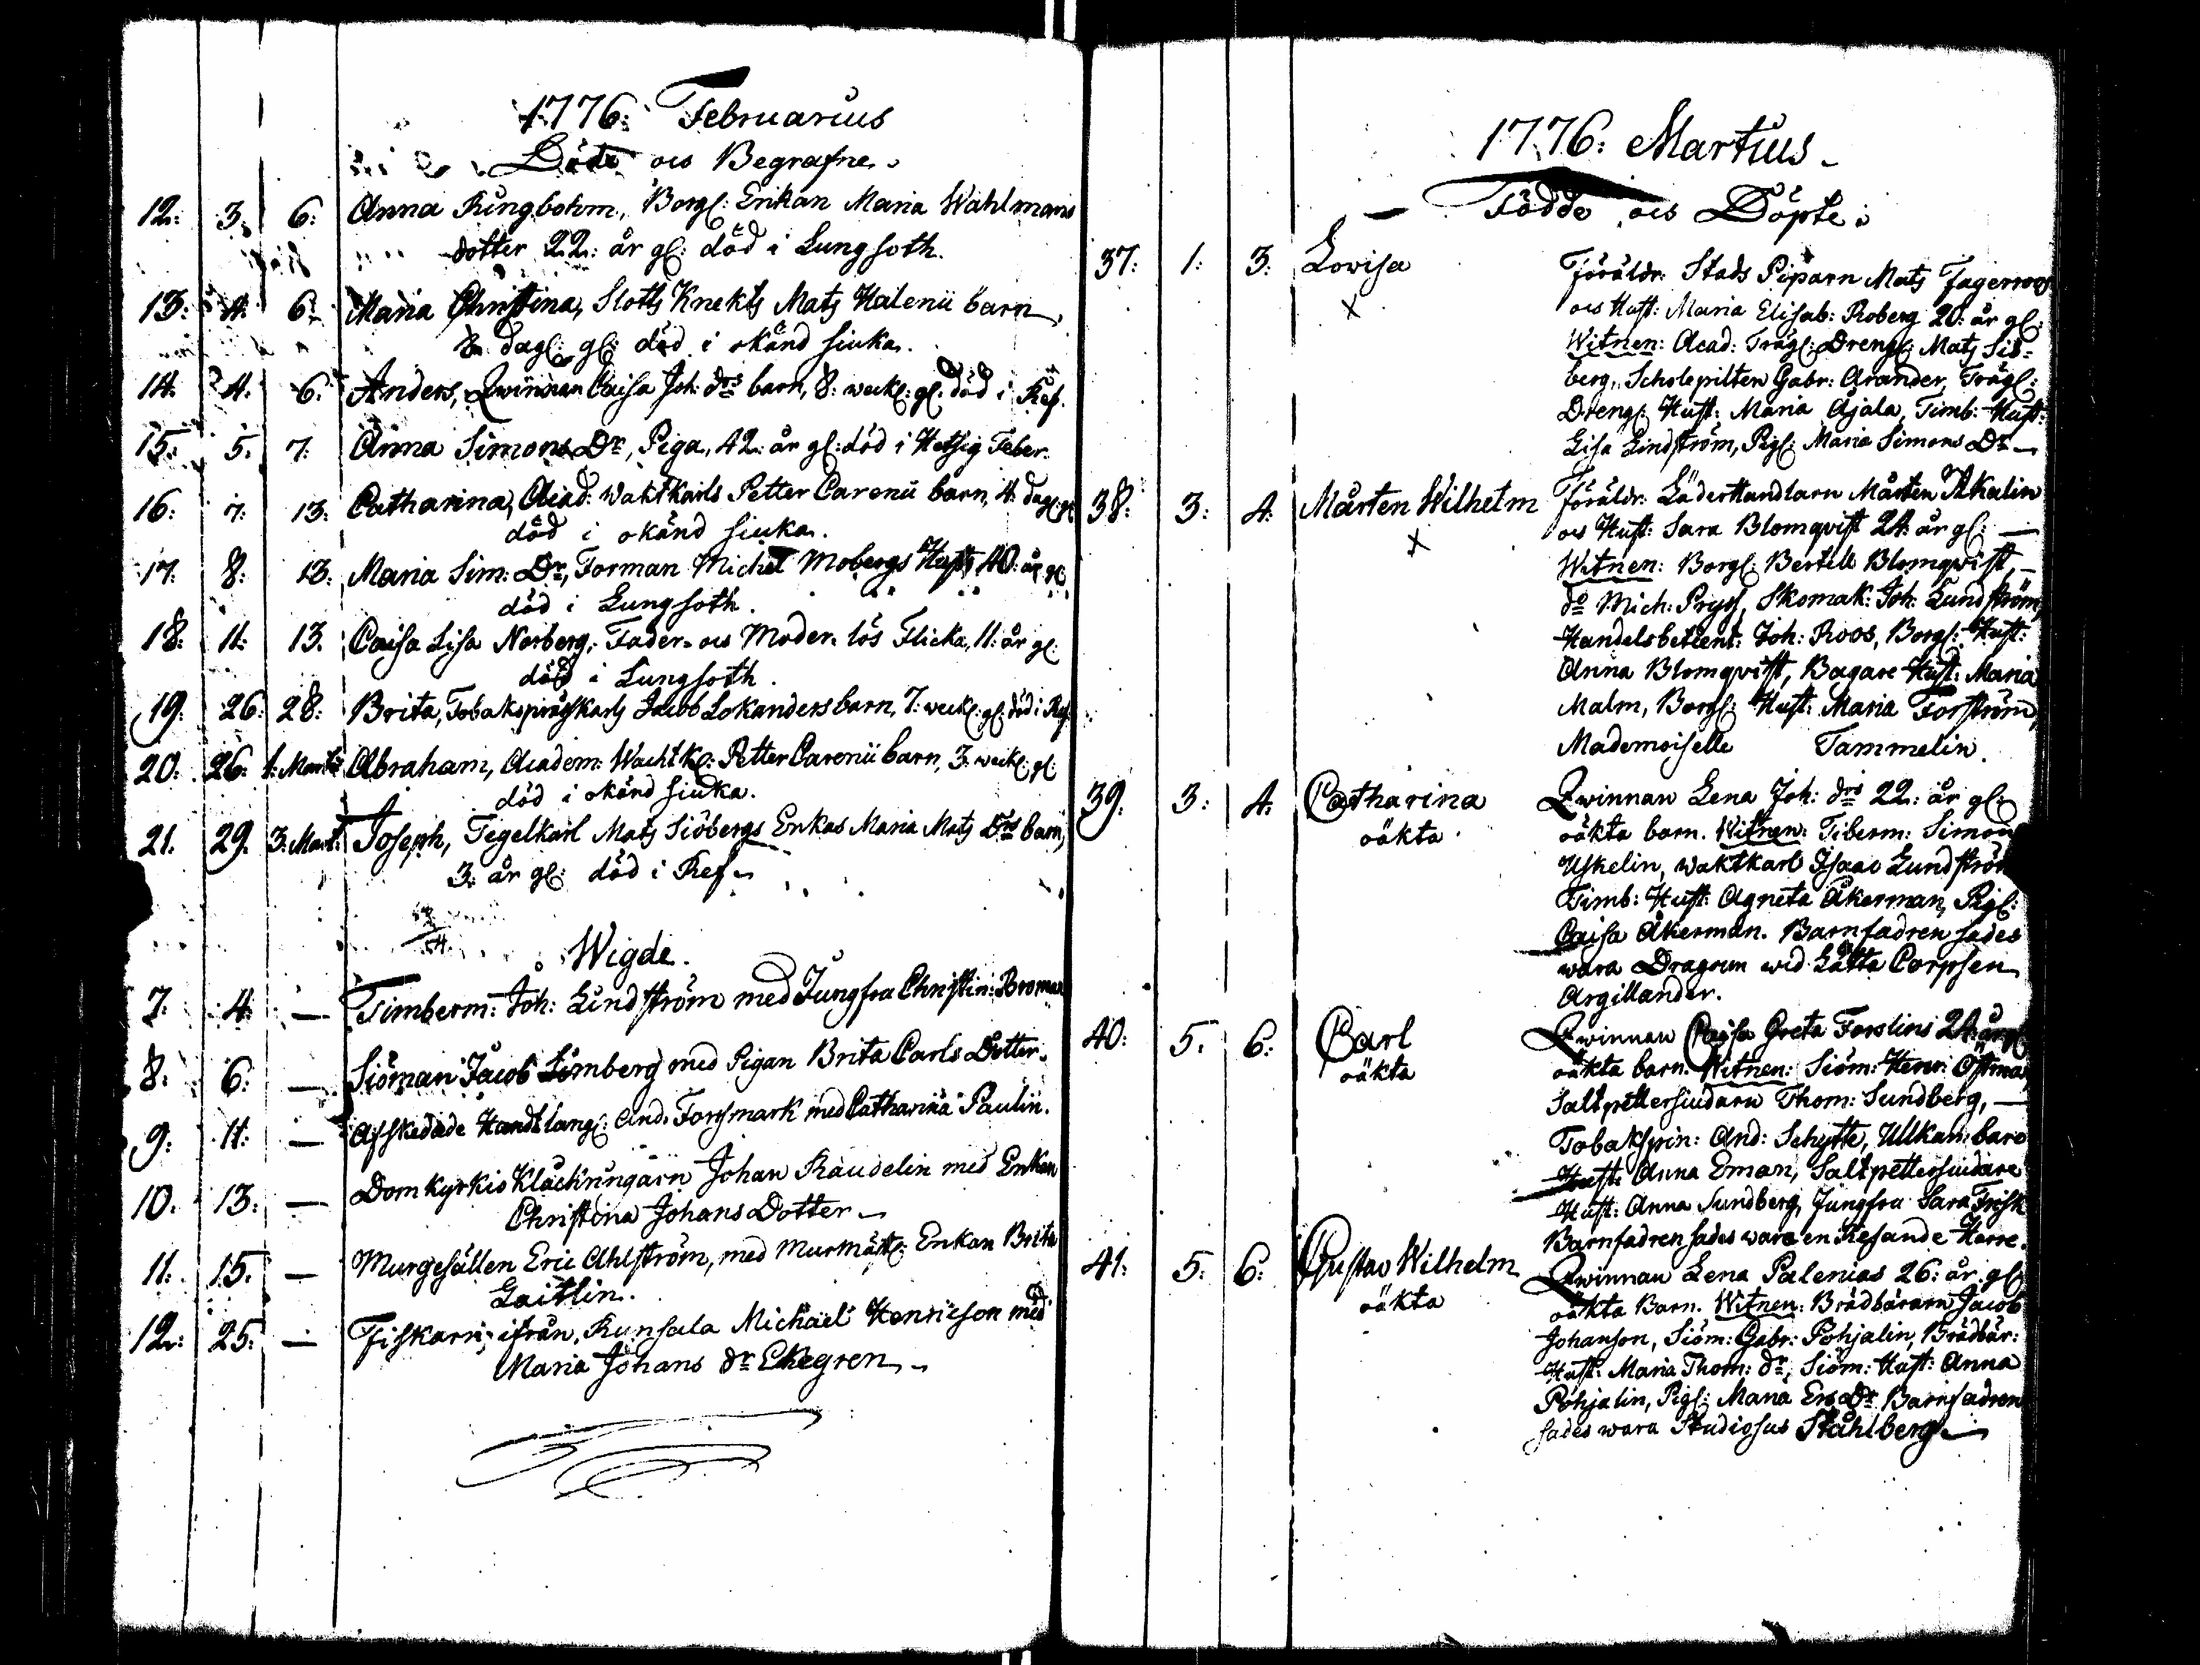 1776: Februarius
Döde ocs Begrafne.
12: 3. 6: Anna Ringbohm, Borgl: Enkan Maria Wahlmans
dotter 22: år gl: död i Lungsoth.
13: 4: 6: Maria Christina, Slotts Knekts Mats Halenii barn,
8 dagl: gl: död i okänd siuka.
14. 4. 6. Anders, Qwinnan Caisa Joh: drs barn, 8: weckl: gl: död i Ref.
15. 5. 7: Anna Simons Dr, Piga, 42: år gl: död i Hetsig Feber.
16: 7: 13: Catharina, Acad: Waktkarls Petter Carenii barn, 4: dagl: gl:
död i okänd siuka.
17: 8: 13: Maria Sim: Dr, Forman Michel Mobergs Hust: 40: år gl:
död i Lungsoth.
18: 11: 13. Caisa Lisa Norberg, Fader- ocs Moder- lös Flicka, 11: år gl:
död i Lungsoth.
19: 26: 28: Brita, Tobakspräss Karls Jacob Lokanders barn, 7: weckl: gl: död i Ref.
20: 26: 1: Martii Abraham, Academ: Wacht K: Petter Carenii barn, 3: weckl: gl:
död i okänd siuka.
21. 29. 3: Mart: Joseph, Tegelkarl Mats Siöbergs Enkas Maria Mats Drs barn,
3: år gl: död i Ref.
Wigde.
7. 4. — Timberm: Joh: Lindström med Jungfru Christin: Broman
8. 6: — Siöman Jacob Limberg med Pigan Brita Carls Dotter.
9: 11: — Afskedade Handtlang: And: Forssmark med Catharina Paulin.
10. 13: — Domkyrkio Klåckringarn Johan Raudelin med Enkan
Christina Johans Dotter
11. 15. — Murgesällen Eric Ahlström, med Murmäst: Enkan Brita
Gaitlin.
12: 25. — Fiskarn ifrån Runsala Michäel Henricson med
Maria Johans dr Ekegren
1776: Martius
Födde ocs Döpte:
37: 1: 3: Lovisa Föräldr: Stads Piparn Mats Fagerroos
x ocs Hust: Maria Elisab: Roberg 20: år gl:
Witnen: Acad: Trägl: Drengl: Mats Sil=
berg, Scholepilten Gabr: Arander, Trägl:
Drengl: Hust: Maria Ajala, Timb: Hust:
Lisa Lindström, Pigl: Maria Simons Dr
38: 3: 4: Mårten Wilhelm Föräldr: Läderhandlarn Mårten Akalin
x ocs Hust: Sara Blomqvist 24: år gl:
Witnen: Borgl: Bertill Blomqvist,
do Mich: Pryss, Skomak: Joh: Lundström,
Handelsbetient: Joh: Roos, Borgl: Hust:
Anna Blomqvist, Bagare Hust: Maria
Malm, Borgl: Hust: Maria Forström,
Mademoiselle Tammelin.
39. 3: 4: Catharina Qwinnan Lena Joh: drs 22: år gl:
oäkta oäkta barn. Witnen: Tiberm: Simon
Uskelin, Waktkarl Isaac Lundström
Timb: Hust: Agneta Åkerman, Pigl:
Caisa Åkerman. Barnfadren sades
wara Dragoun wid Lätta Corpsen
Argillander.
40: 5. 6: Carl Qwinnan Caisa Greta Forslins 24: år gl:
oäkta oäkta barn. Witnen: Siöm: Henr: Östman
Saltpettersiudarn Thom: Sundberg,
Tobakspin: And: Schytte, Ullkambare
Hust: Anna Eman, Saltpettersiudare
Hust: Anna Sundberg, Jungfru Sara Frisk
Barnfadren sades wara en Resande Herre.
41. 5: 6: Gustav Wilhelm Qwinnan Lena Palenias 26: år gl:
oäkta oäkta Barn. Witnen: Brädbärarn Jacob
Johanson, Siöm: Gabr: Pohjalin, Brädbär:
Hust: Maria Thom: dr, Siöm: Hust: Anna
Pohjalin, Pigl: Maria Ers Dr. Barnfadren
sades wara Studiosus Ståhlberg